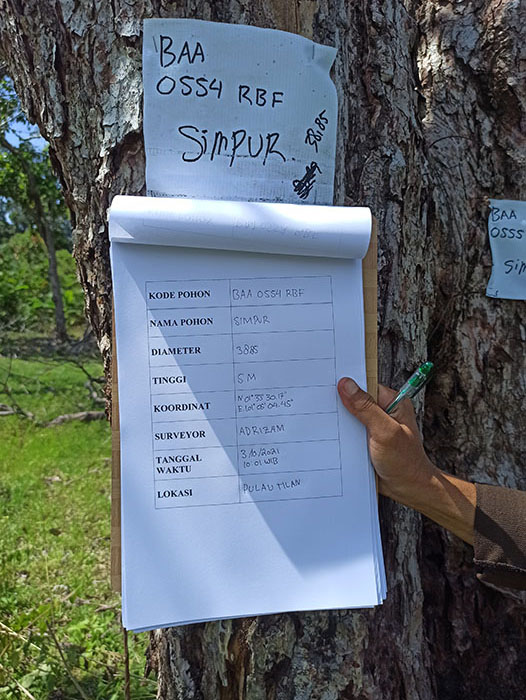 BAA
0554 RBF
SIMPUR
38.85
KODE POHON BAA 0554 RBF
NAMA POHON SIMPUR
DIAMETER 38.85
TINGGI 5 M
KOORDINAT N 01° 35' 30.17"
E 101° 05' 04.45"
SURVEYOR ADRIZAM
TANGGAL WAKTU 3/10/2021
10:01 WIB
LOKASI PULAU
BAA
0555